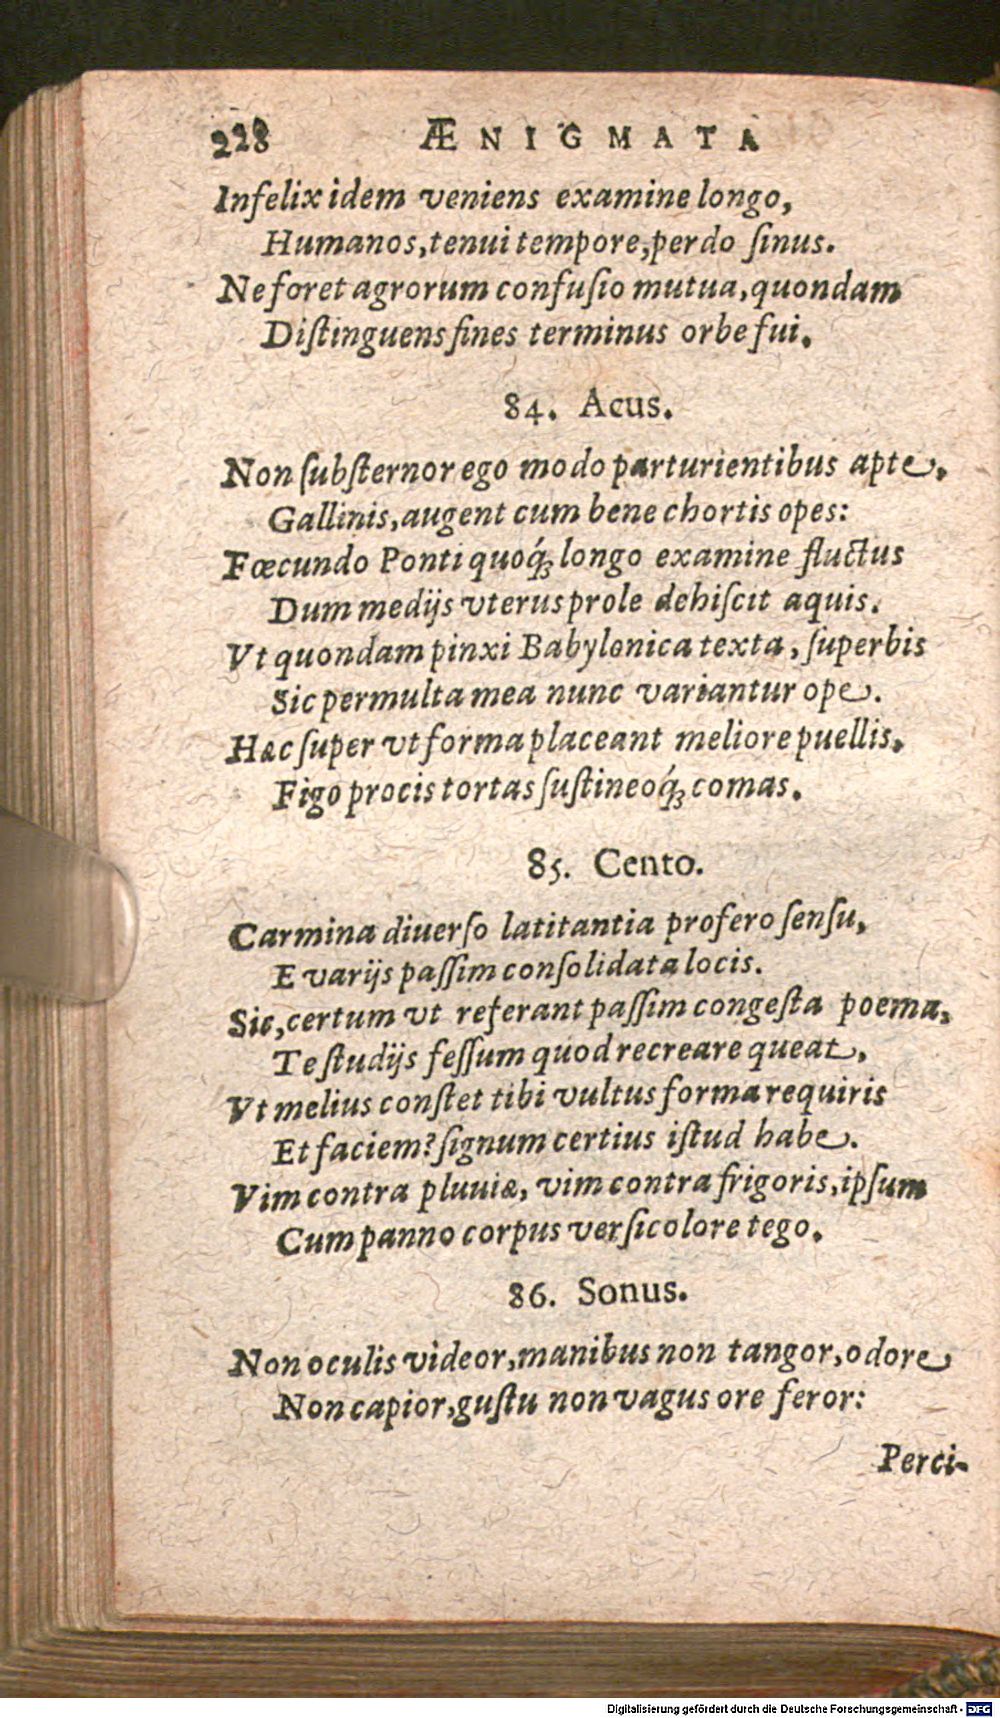 228 ÆNIGMATA
Infelix idem veniens examine longo,
Humanos, tenui tempore, perdo ſinus.
Ne foret agrorum confuſio mutua, quondam
Diſtinguens fines terminus orbe fui.
84. Acus.
Non ſubſternor ego modo parturientibus apte,
Gallinis, augent cum bene chortis opes:
Fœcundo Ponti quoq́ꝫ longo examine fluctus
Dum medijs vterus prole dehiſcit aquis.
Vt quondam pinxi Babylonica texta, ſuperbis
Sic permulta mea nunc variantur ope.
Hæc ſuper vt forma placeant meliore puellis,
Figo procis tortas ſuſtineoq́ꝫ comas.
85. Cento.
Carmina diuerſo latitantia profero ſenſu,
E varijs paſſim conſolidata locis.
Sic, certum vt referant paſſim congeſta poema,
Te ſtudijs feſſum quod recreare queat,
Vt melius conſtet tibi vultus forma requiris
Et faciem? ſignum certius iſtud habe.
Vim contra pluuiæ, vim contra frigoris, ipſum
Cum panno corpus verſicolore tego.
86. Sonus.
Non oculis videor, manibus non tangor, odore
Non capior, guſtu non vagus ore feror:
Perci-
Digitalisierung gefördert durch die Deutsche Forschungsgemeinschaft - DFG